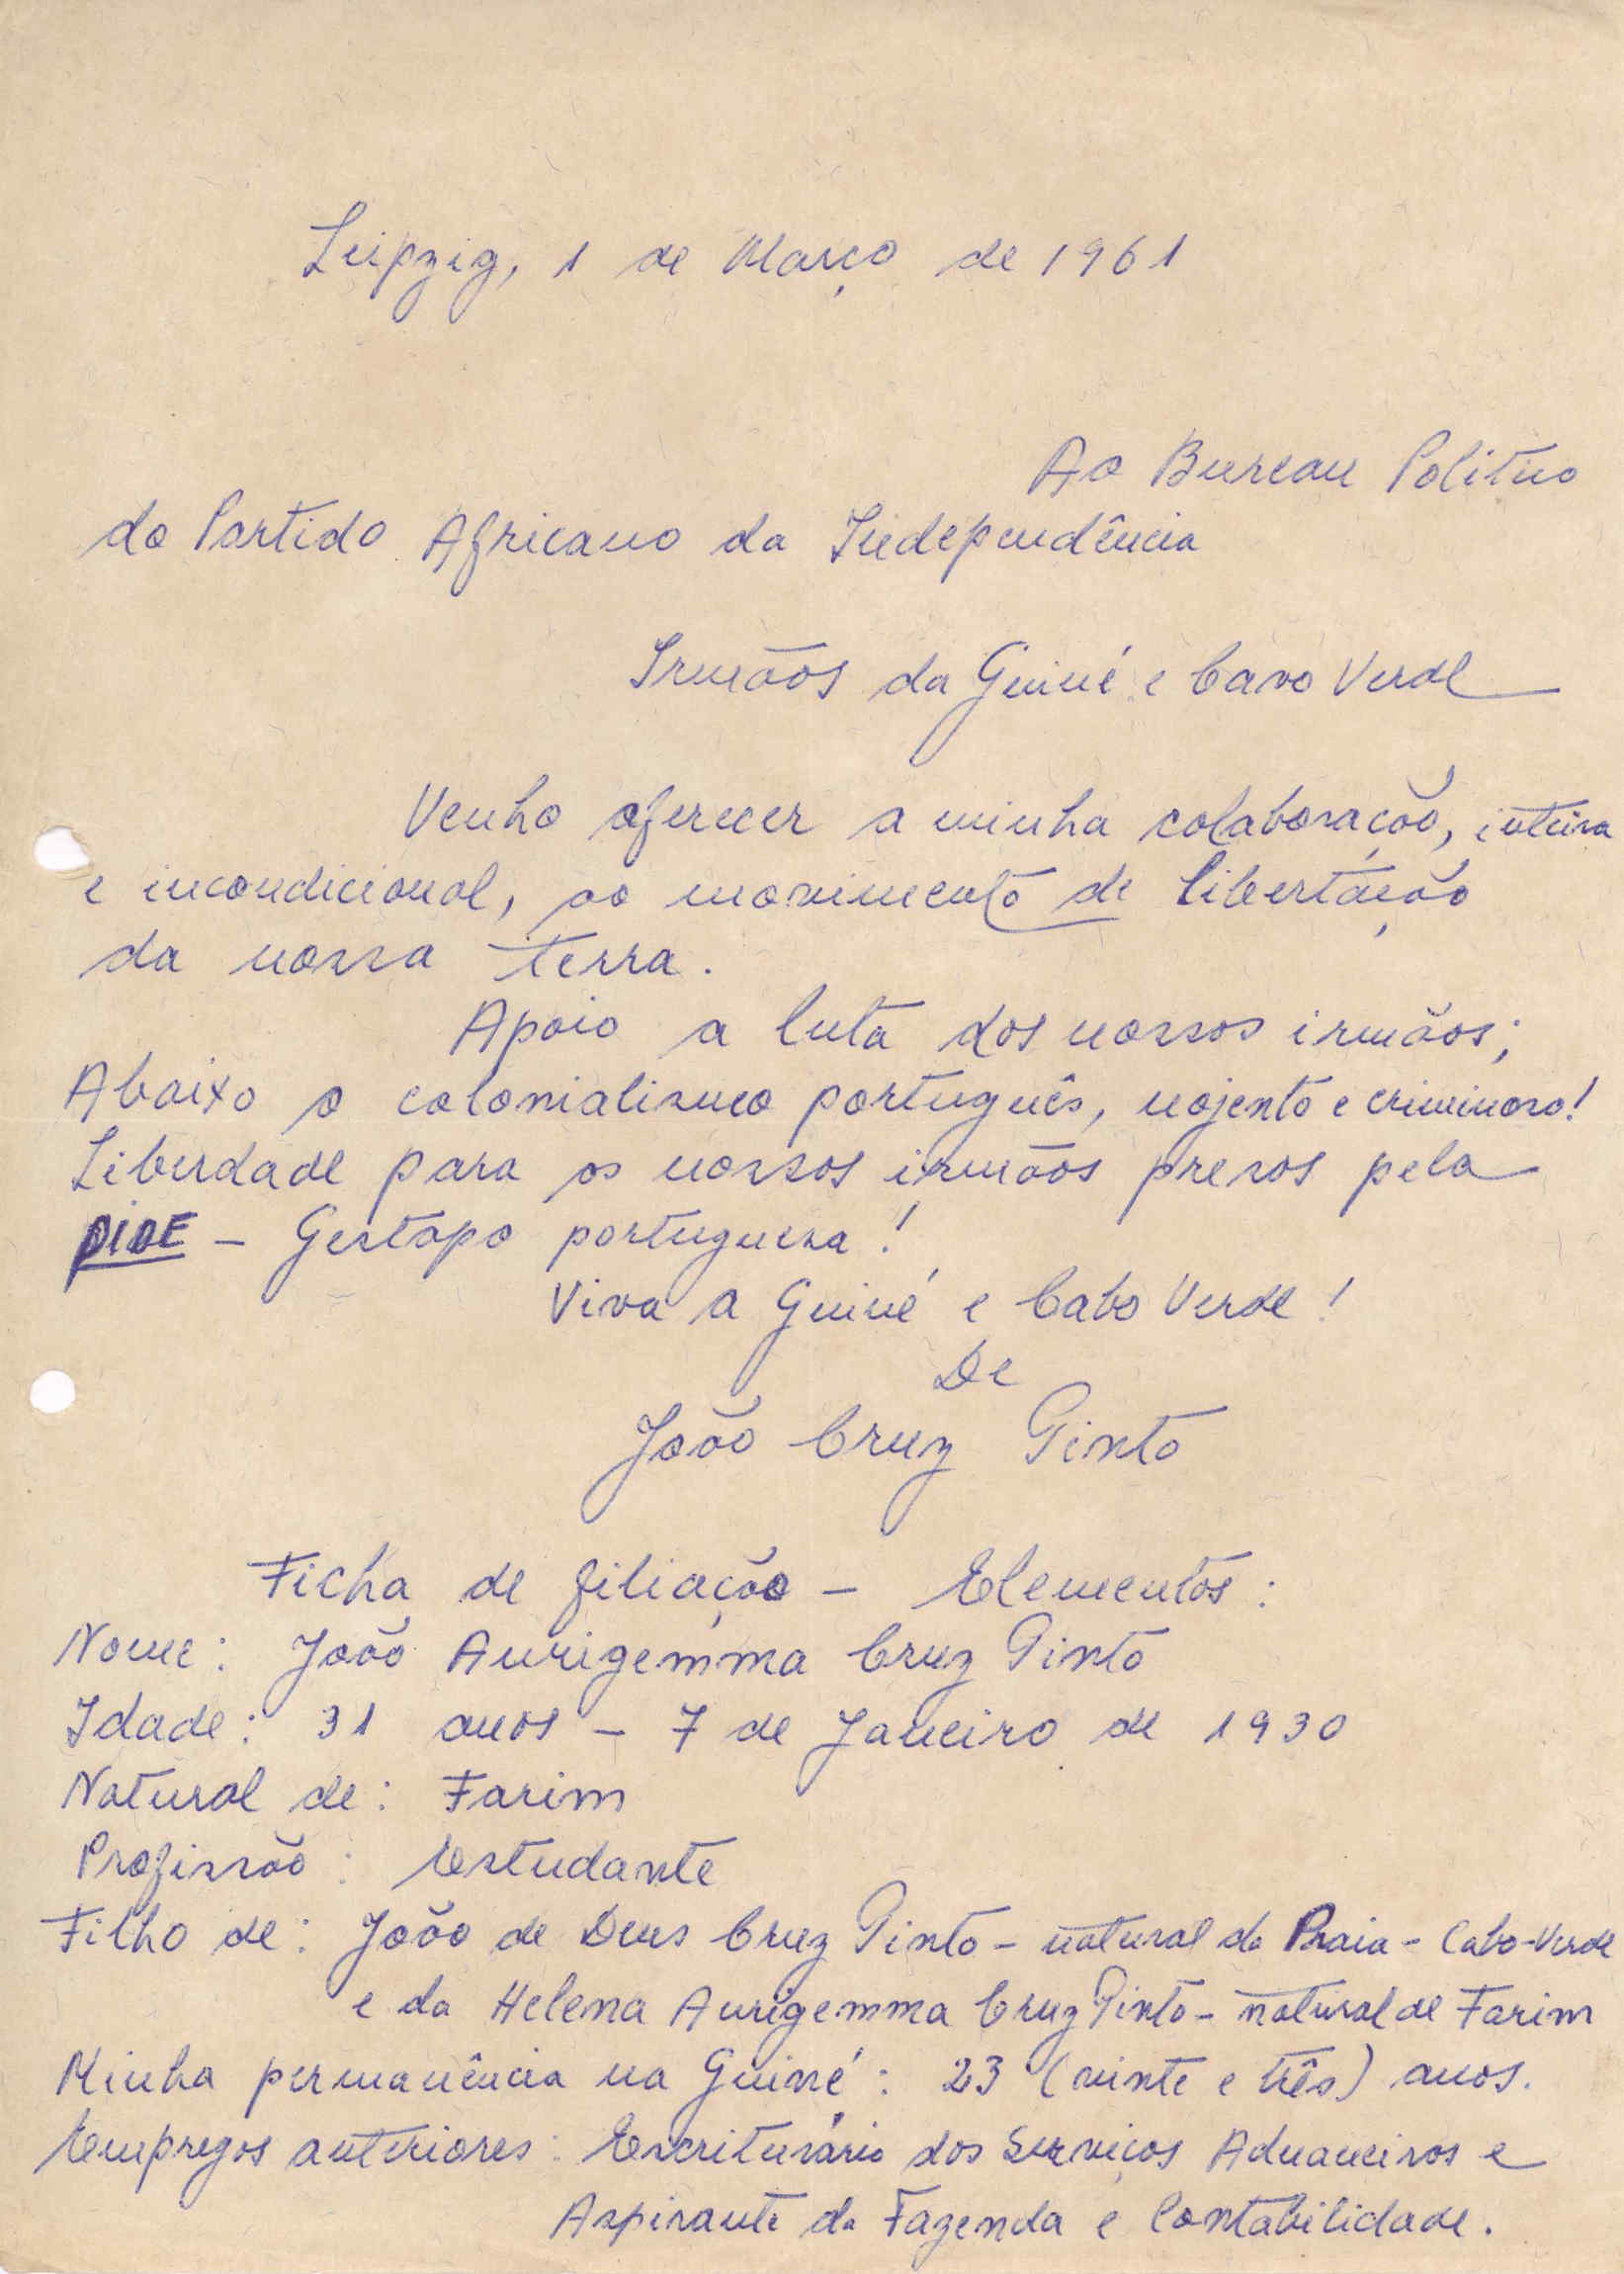 Leipzig, 1 de Março de 1961
Ao Bureau Politico
do Partido Africano da Independência
Irmãos da Guiné e Cavo Verde
Venho oferecer a minha colaboração, inteira
e incondicional, ao movimento de libertação
da nossa terra.
Apoio a luta dos nossos irmãos;
Abaixo o colonialismo português, nojento e criminoso!
Liberdade para os nossos irmãos presos pela
PIDE – Gestapo portuguesa!
Viva a Guiné e Cabo Verde!
De
João Cruz Pinto
Ficha de filiação – Elementos:
Nome: João Aurigemma Cruz Pinto
Idade: 31 anos – 7 de Janeiro de 1930
Natural de: Farim
Profissão: Estudante
Filho de: João de Deus Cruz Pinto – natural da Praia – Cabo-Verde
e da Helena Aurigemma Cruz Pinto – natural de Farim
Minha permanência na Guiné: 23 (vinte e três) anos.
Empregos anteriores: Escriturário dos Serviços Aduaneiros e
Aspirante da Fazenda e Contabilidade.